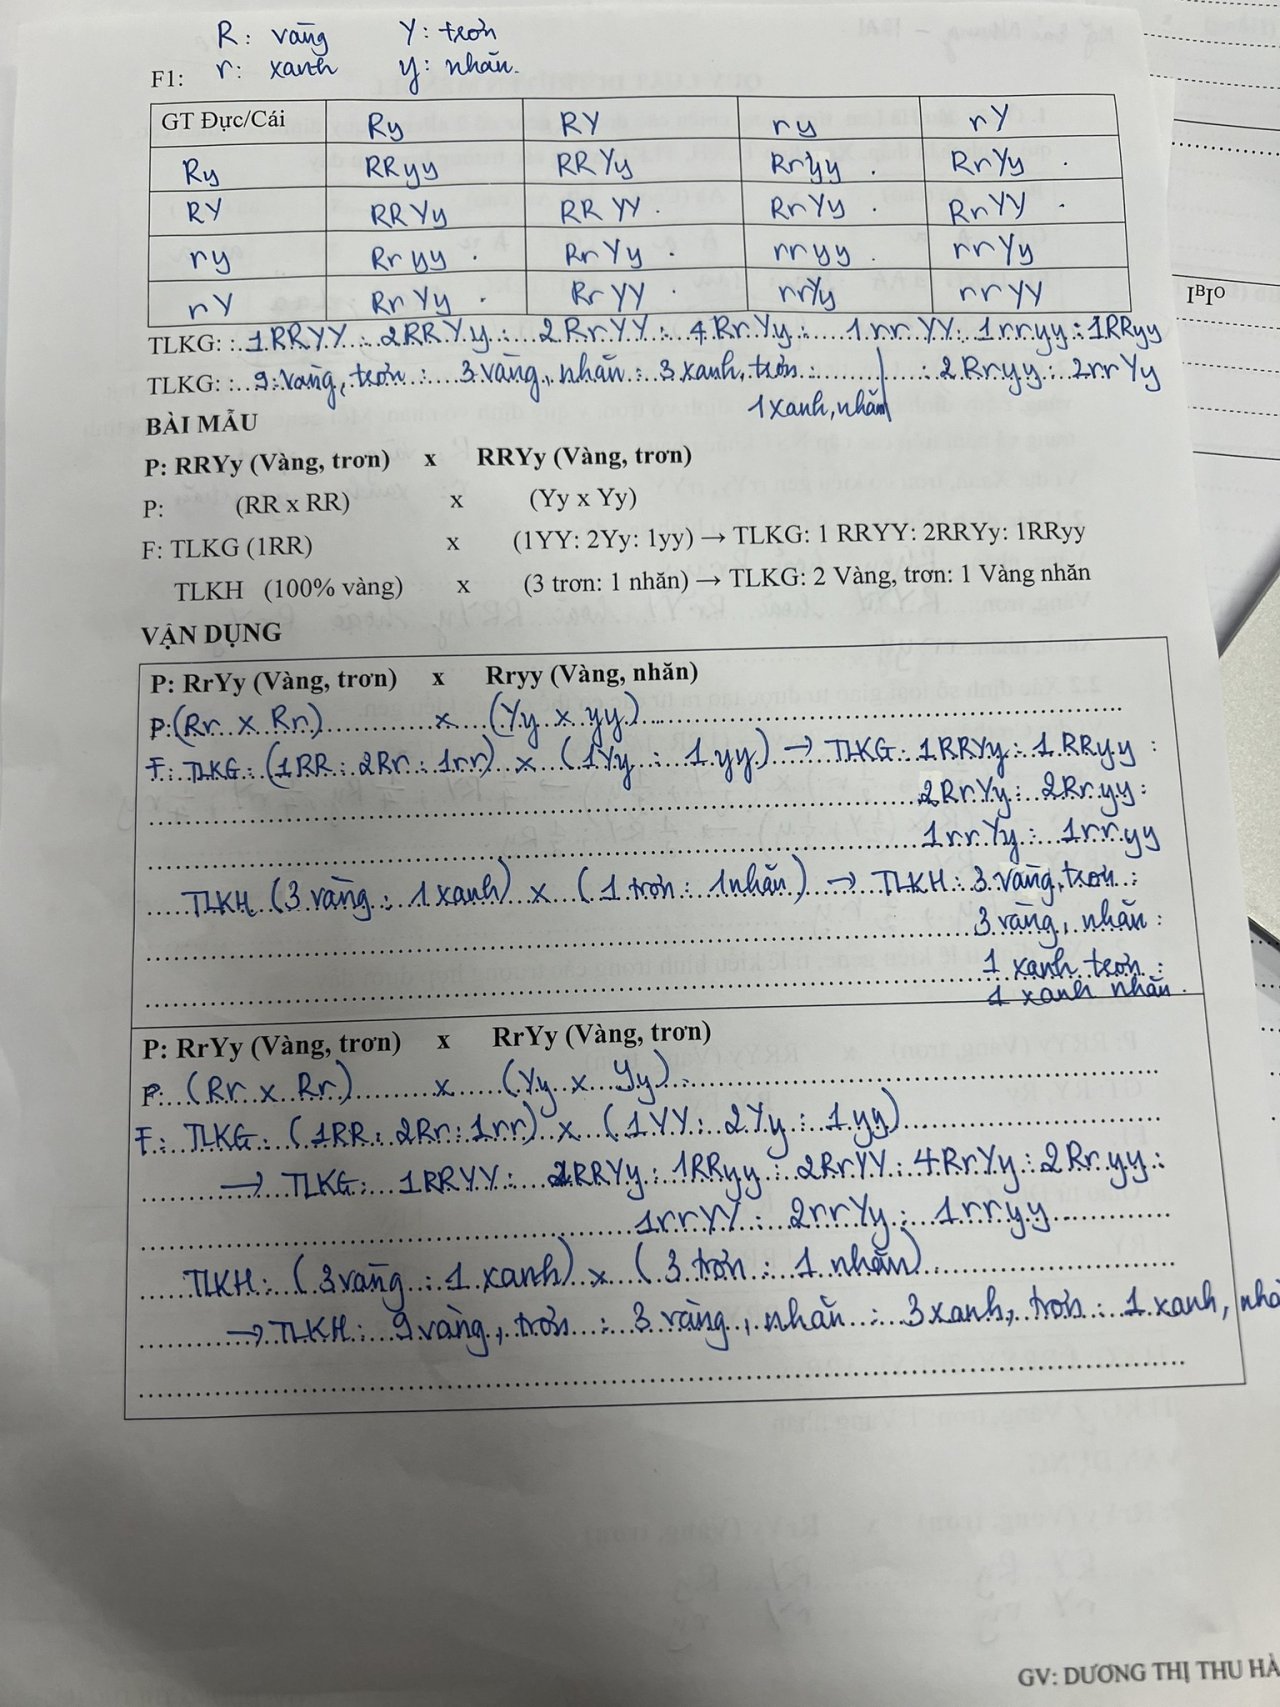 R: vàng Y: trơn
F1: r: xanh y: nhăn.
GT Đực/Cái Ry RY ry rY
Ry RRyy RRYy Rryy . RrYy .
RY RRYy RRYY . RrYy . RrYY .
ry Rryy . RrYy . rryy . rrYy
rY RrYy . RrYY . rrYy rrYY
TLKG: : 1RRYY : 2RRYy : 2RrYY : 4RrYy : 1rrYY : 1rryy : 1RRyy
TLKG: : 9 vàng, trơn : 3 vàng, nhăn : 3 xanh, trơn : : 2Rryy : 2rrYy
1 xanh, nhăn
BÀI MẪU
P: RRYy (Vàng, trơn) x RRYy (Vàng, trơn)
P: (RR x RR) x (Yy x Yy)
F: TLKG (1RR) x (1YY: 2Yy: 1yy) → TLKG: 1 RRYY: 2RRYy: 1RRyy
TLKH (100% vàng) x (3 trơn: 1 nhăn) → TLKG: 2 Vàng, trơn: 1 Vàng nhăn
VẬN DỤNG
P: RrYy (Vàng, trơn) x Rryy (Vàng, nhăn)
P: (Rr x Rr) x (Yy x yy)
F: TLKG : (1RR : 2Rr : 1rr) x (1Yy : 1yy) → TLKG : 1RRYy : 1RRyy :
2RrYy : 2Rryy :
1rrYy : 1rryy
TLKH (3 vàng : 1 xanh) x (1 trơn : 1 nhăn) → TLKH : 3 vàng, trơn :
3 vàng, nhăn :
1 xanh trơn :
1 xanh nhăn .
P: RrYy (Vàng, trơn) x RrYy (Vàng, trơn)
P: (Rr x Rr) x (Yy x Yy)
F: TLKG : (1RR : 2Rr : 1rr) x (1YY : 2Yy : 1yy)
→ TLKG : 1RRYY : 2RRYy : 1RRyy : 2RrYY : 4RrYy : 2Rryy :
1rrYY : 2rrYy : 1rryy
TLKH : (3 vàng : 1 xanh) x (3 trơn : 1 nhăn)
→ TLKH : 9 vàng, trơn : 3 vàng, nhăn : 3 xanh, trơn : 1 xanh, nhă
GV: DƯƠNG THỊ THU HÀ
IᴮIᴼ